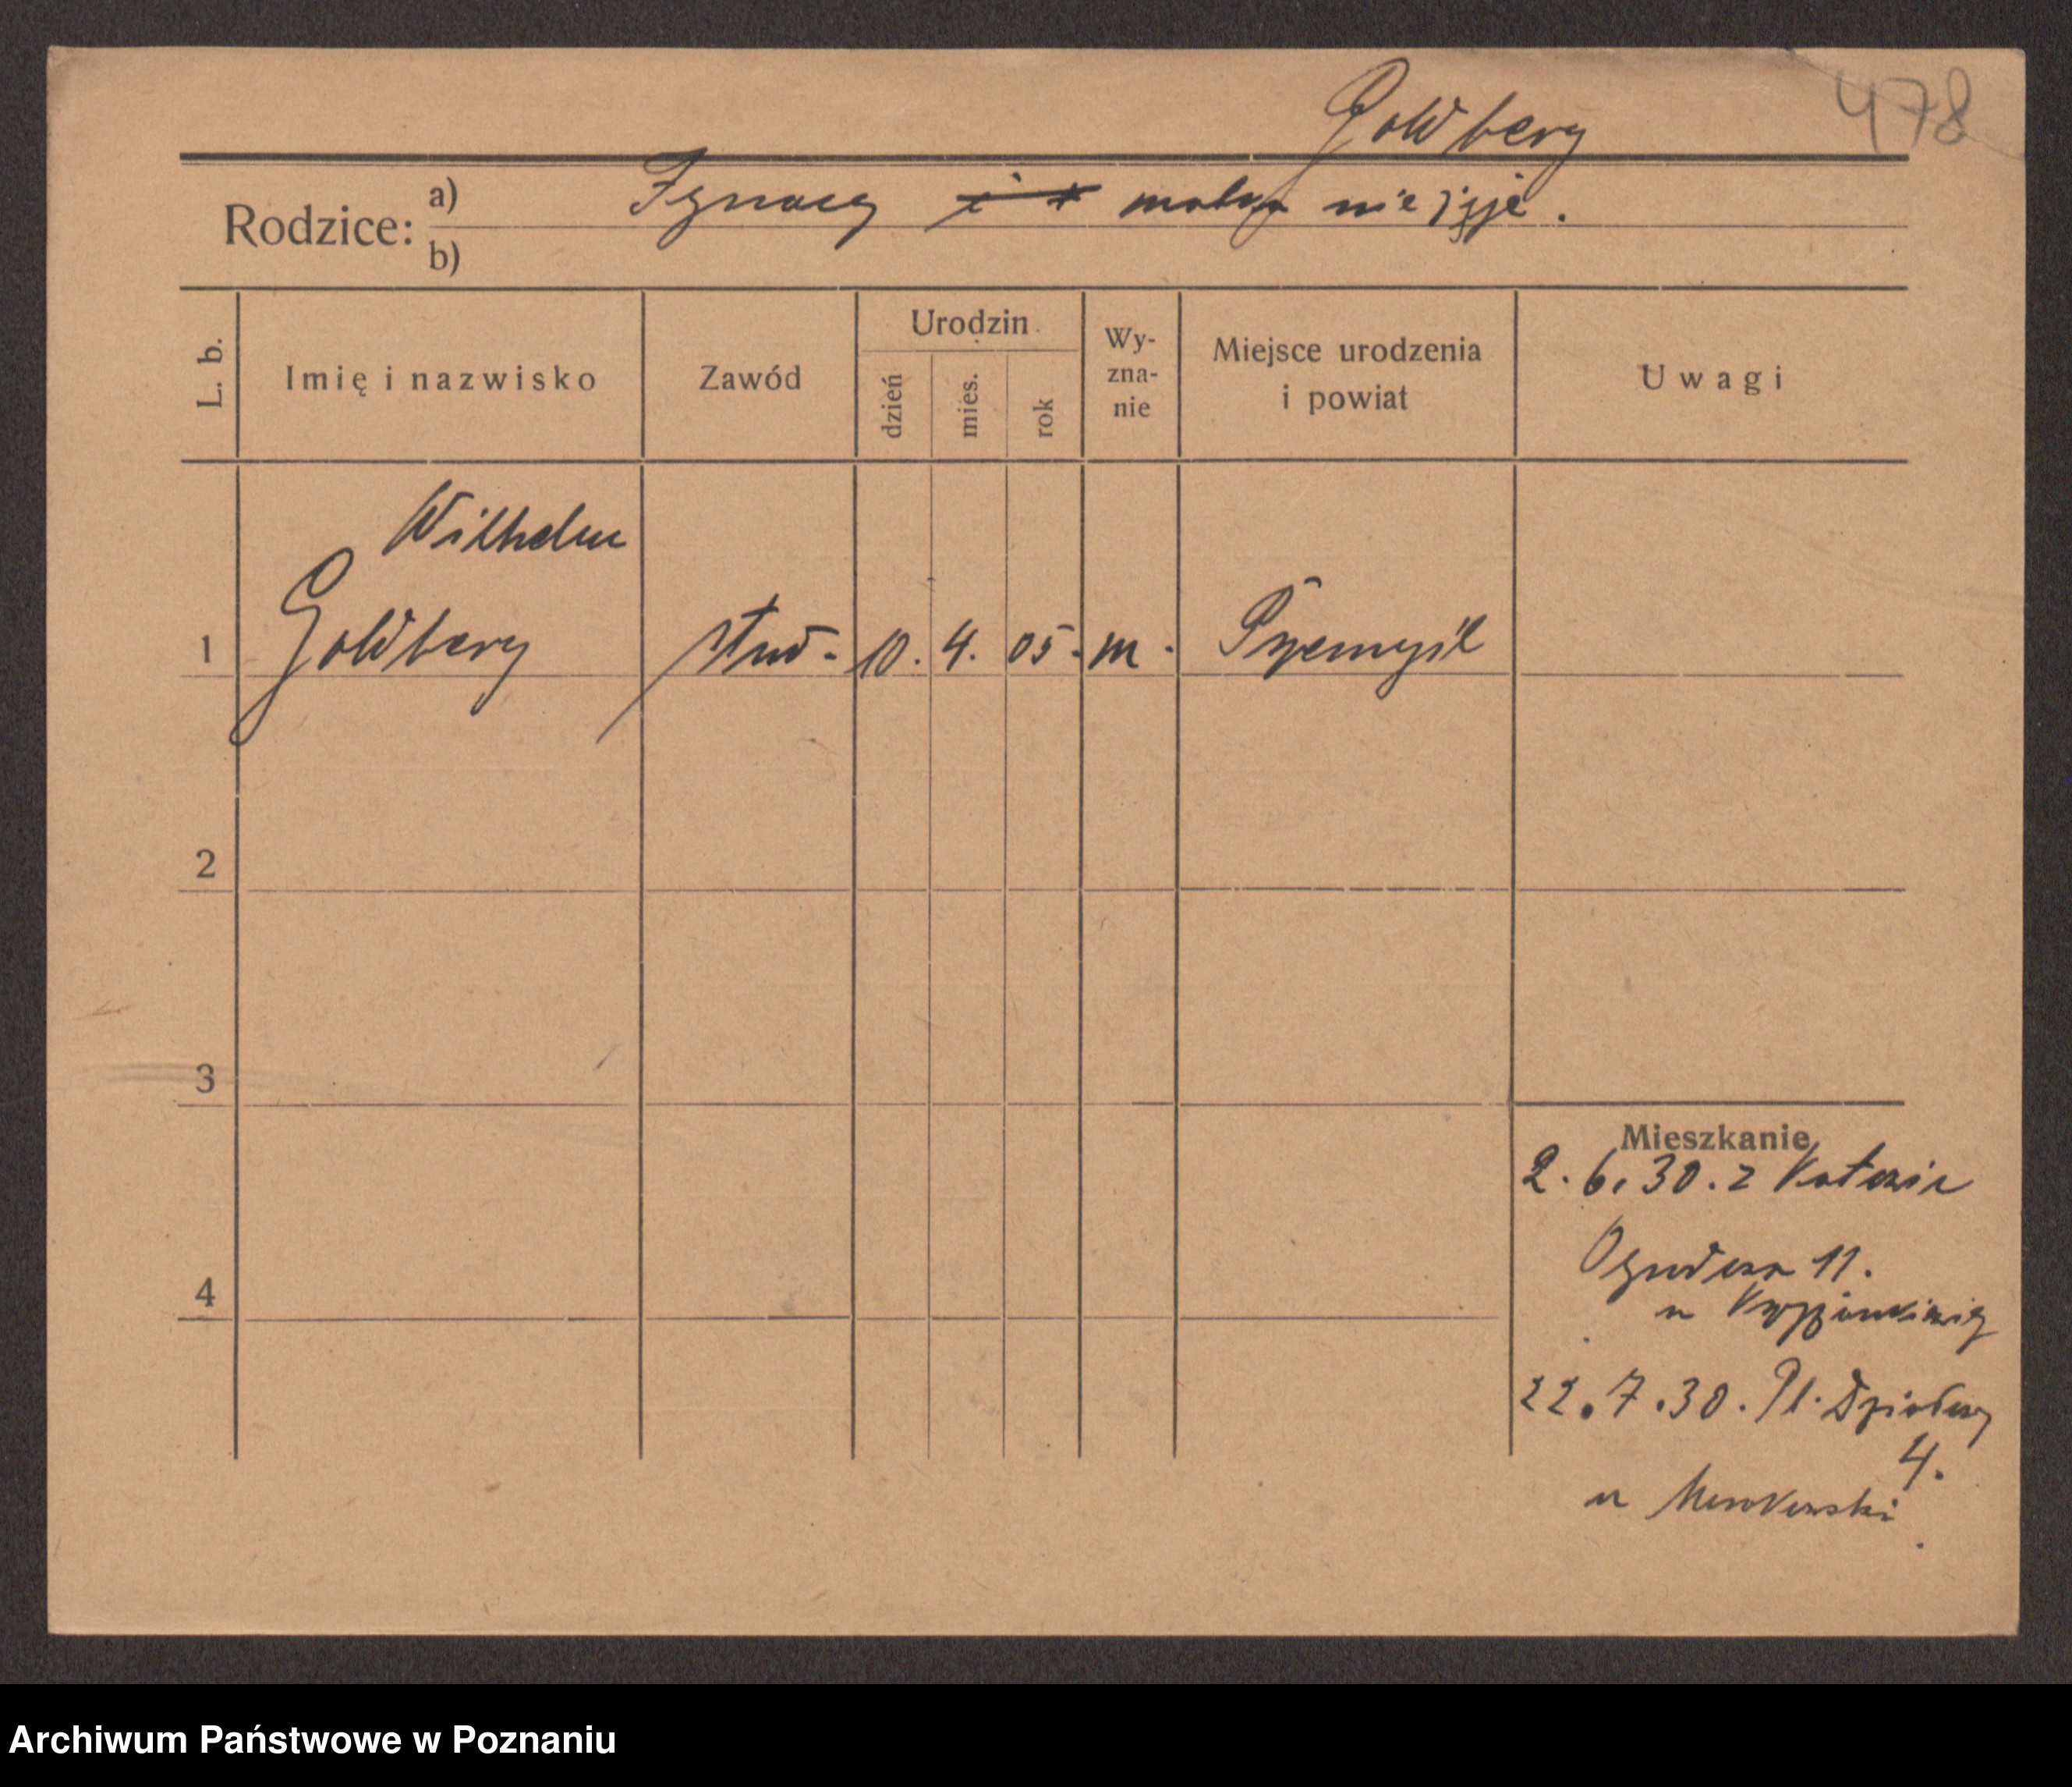 Goldberg
478
Rodzice:
a) Ignacy i matka nie żyje.
b)
L. b.
Imię i nazwisko
Zawód
Urodzin
dzień
mies.
rok
Wy-
zna-
nie
Miejsce urodzenia
i powiat
Uwagi
Wilhelm
1 Goldberg stud. 10. 4. 05. m. Przemyśl
2
3
4
Mieszkanie
2. 6. 30. z Katowic
Ogrodowa 11.
u
22. 7. 30. Pl. Działowy
4.
u
Archiwum Państwowe w Poznaniu